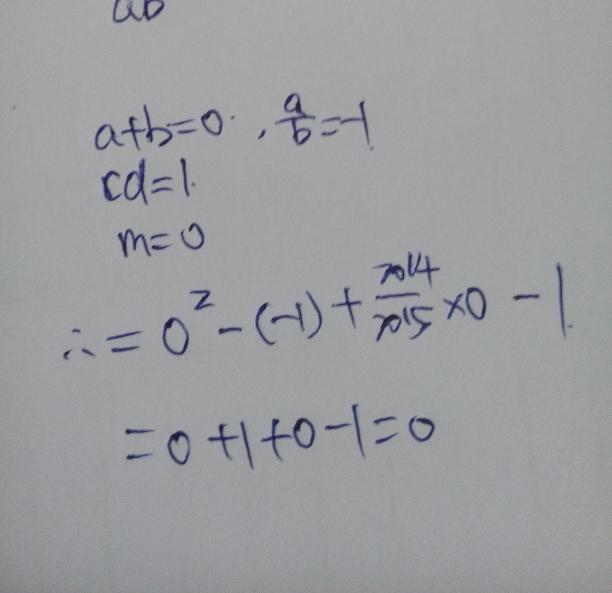 ab
a+b=0. , a/b=-1
cd=1.
m=0
∴ = 0² - (-1) + 2014/2015 ×0 - 1.
= 0 +1+0-1=0